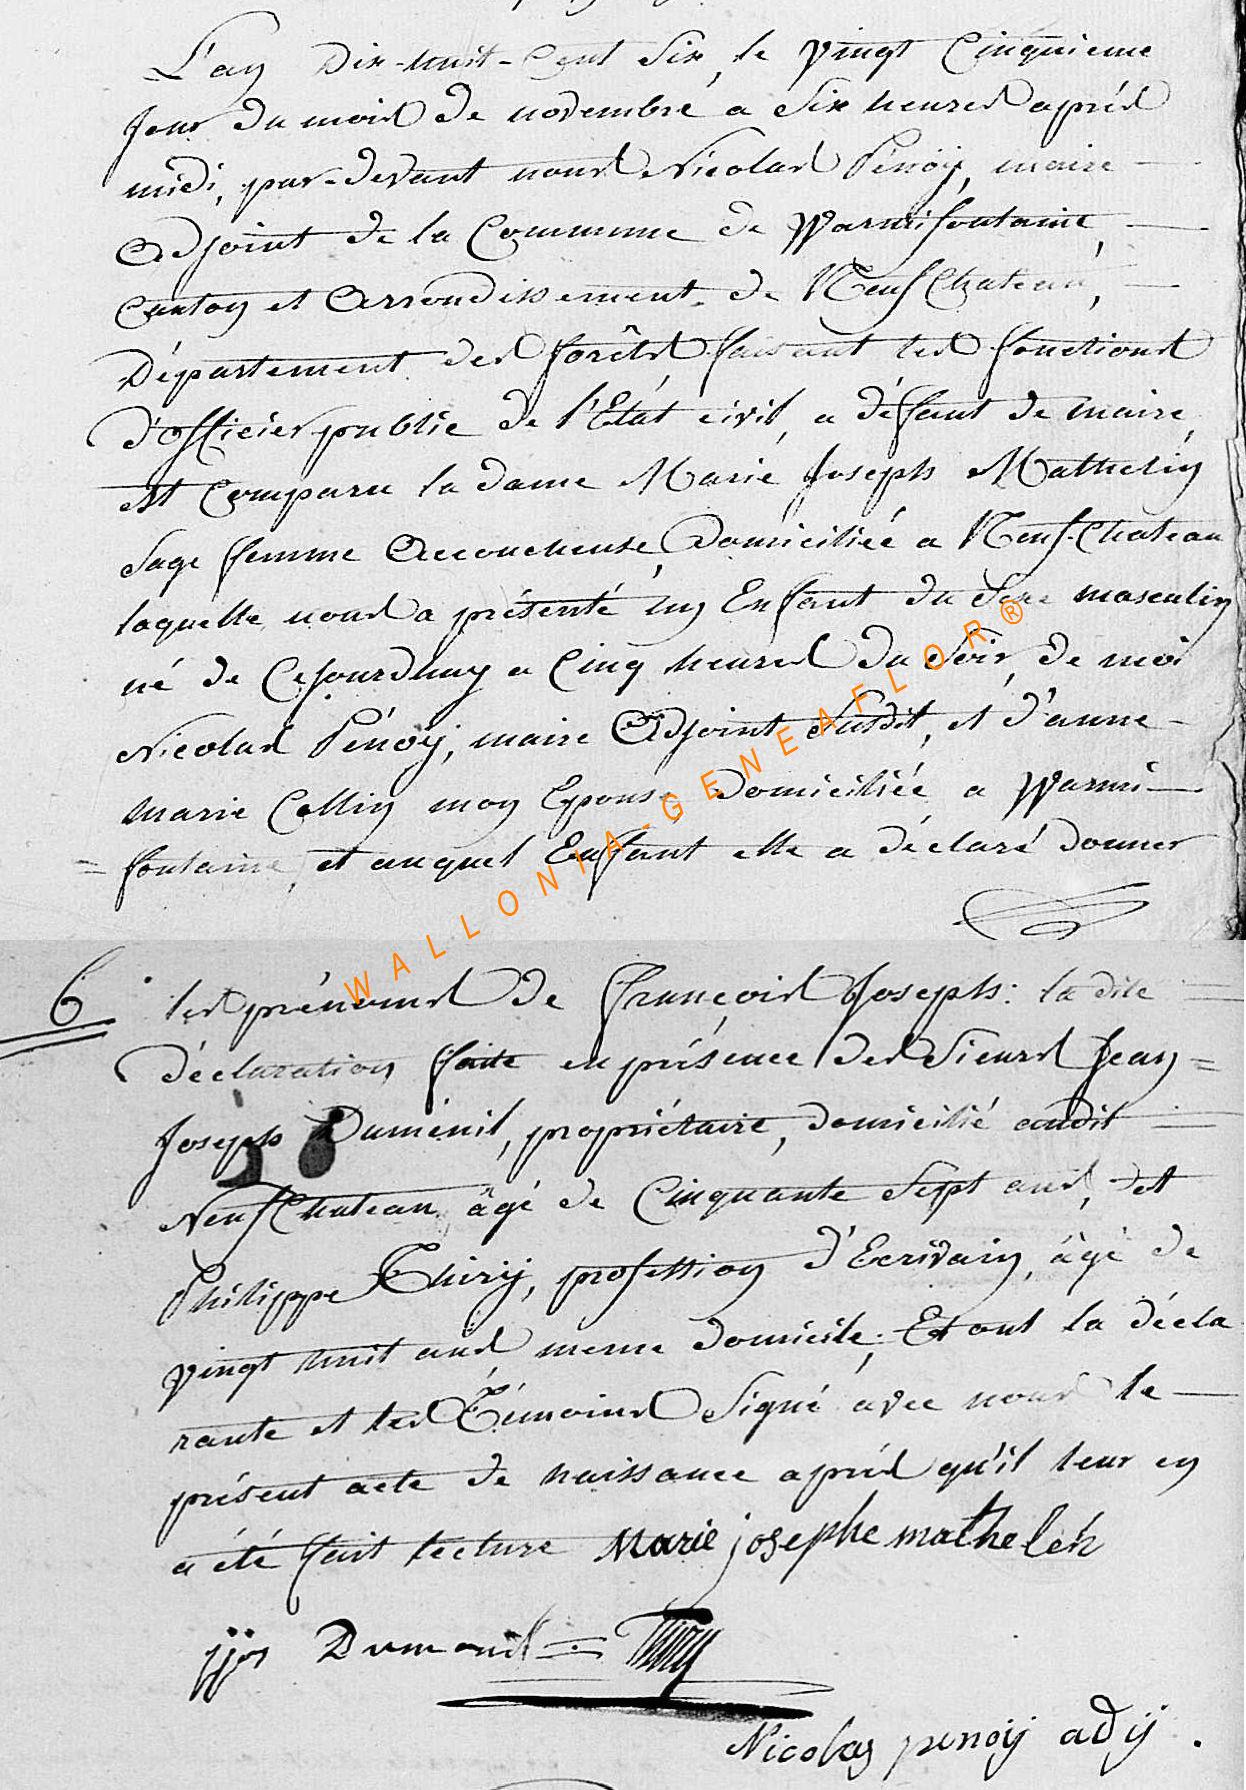 L'an Dix-huit-Cent Six, le vingt Cinquieme
Jour du mois de novembre a Six heures après
midi, par-devant nous Nicolas Pénoÿ, maire
Adjoint de la Commune de Warmifontaine,
Canton et Arrondissement de Neufchateau,
Département des forêts, faisant les fonctions
d'officier public de l'Etat civil, a défaut de maire,
est Comparu la dame Marie Joseph Mathelin
Sage femme Accoucheuse, Domiciliée a Neuf-Chateau
laquelle nous a présenté un Enfant du Sexe masculin
né de Cejourdhuy a Cinq heures du Soir, de moi
Nicolas Pénoÿ, maire Adjoint Susdit, et d'anne
marie Collin mon Epouse Domiciliée a Warmi-
= fontaine, et auquel Enfant elle a déclaré donner
6 les prénoms de François Joseph: la dite
déclaration faite en présence des Sieurs Jean =
Joseph Duménil, propriétaire, domicilié audit
Neufchateau âgé de Cinquante Sept ans, et
Philippe Thirÿ, profession d'Ecrivain, âgé de
vingt huit ans même domicile; Et ont la décla
rante et les Témoins Signé avec nous le
présent acte de naissance après qu'il leur en
a été fait lecture Marie josephe mathelén
jjos Dumenil = Thiry
Nicolas penoÿ adÿ.
WALLONIA-GENEAFLOR®